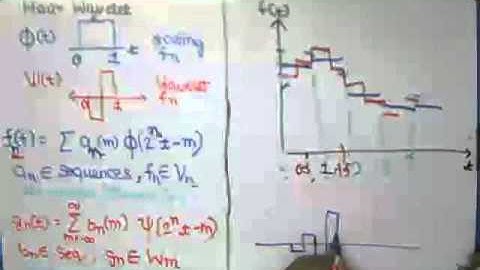 Haar Wavelet
ϕ(t)
0 1 t
scaling
fn
ψ(t)
0 1 t
Wavelet
fn
fₙ(t) = ∑ aₙ(m) ϕ(2ⁿt-m)
aₙ ∈ sequences, fₙ ∈ Vₙ
gₙ(t) = ∑ bₙ(m) ψ(2ⁿt-m)
m=-∞ ∞
bₙ ∈ seq, gₙ ∈ Wm
f(t)
t